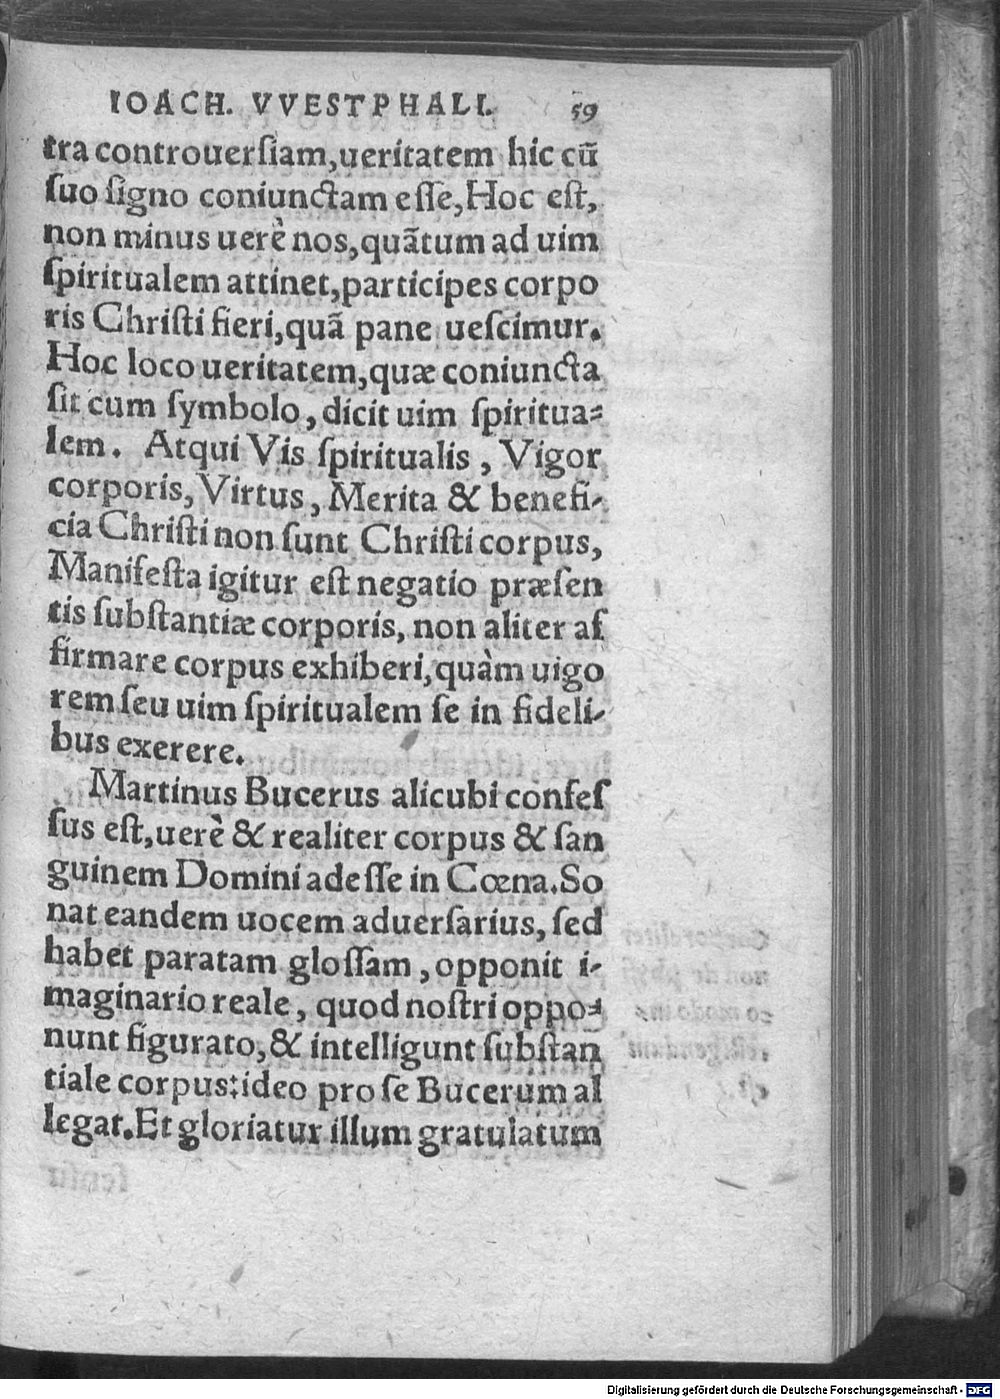 IOACH. VVESTPHALI. 59
tra controuerſiam,ueritatem hic cū
ſuo ſigno coniunctam eſſe,Hoc eſt,
non minus uerè nos,quãtum ad uim
ſpiritualem attinet,participes corpo
ris Chriſti fieri,quã pane ueſcimur.
Hoc loco ueritatem,quæ coniuncta
ſit cum ſymbolo, dicit uim ſpiritua⸗
lem. Atqui Vis ſpiritualis, Vigor
corporis, Virtus, Merita & benefi-
cia Chriſti non ſunt Chriſti corpus,
Manifeſta igitur eſt negatio præſen
tis ſubſtantiæ corporis, non aliter aſ
firmare corpus exhiberi,quàm uigo
rem ſeu uim ſpiritualem ſe in fideli-
bus exerere.
Martinus Bucerus alicubi confeſ
ſus eſt,uerè & realiter corpus & ſan
guinem Domini adeſſe in Cœna.So
nat eandem uocem aduerſarius, ſed
habet paratam gloſſam, opponit i-
maginario reale, quod noſtri oppo⸗
nunt figurato,& intelligunt ſubſtan
tiale corpus:ideo pro ſe Bucerum al
legat.Et gloriatur illum gratulatum
Digitalisierung gefördert durch die Deutsche Forschungsgemeinschaft - DFG